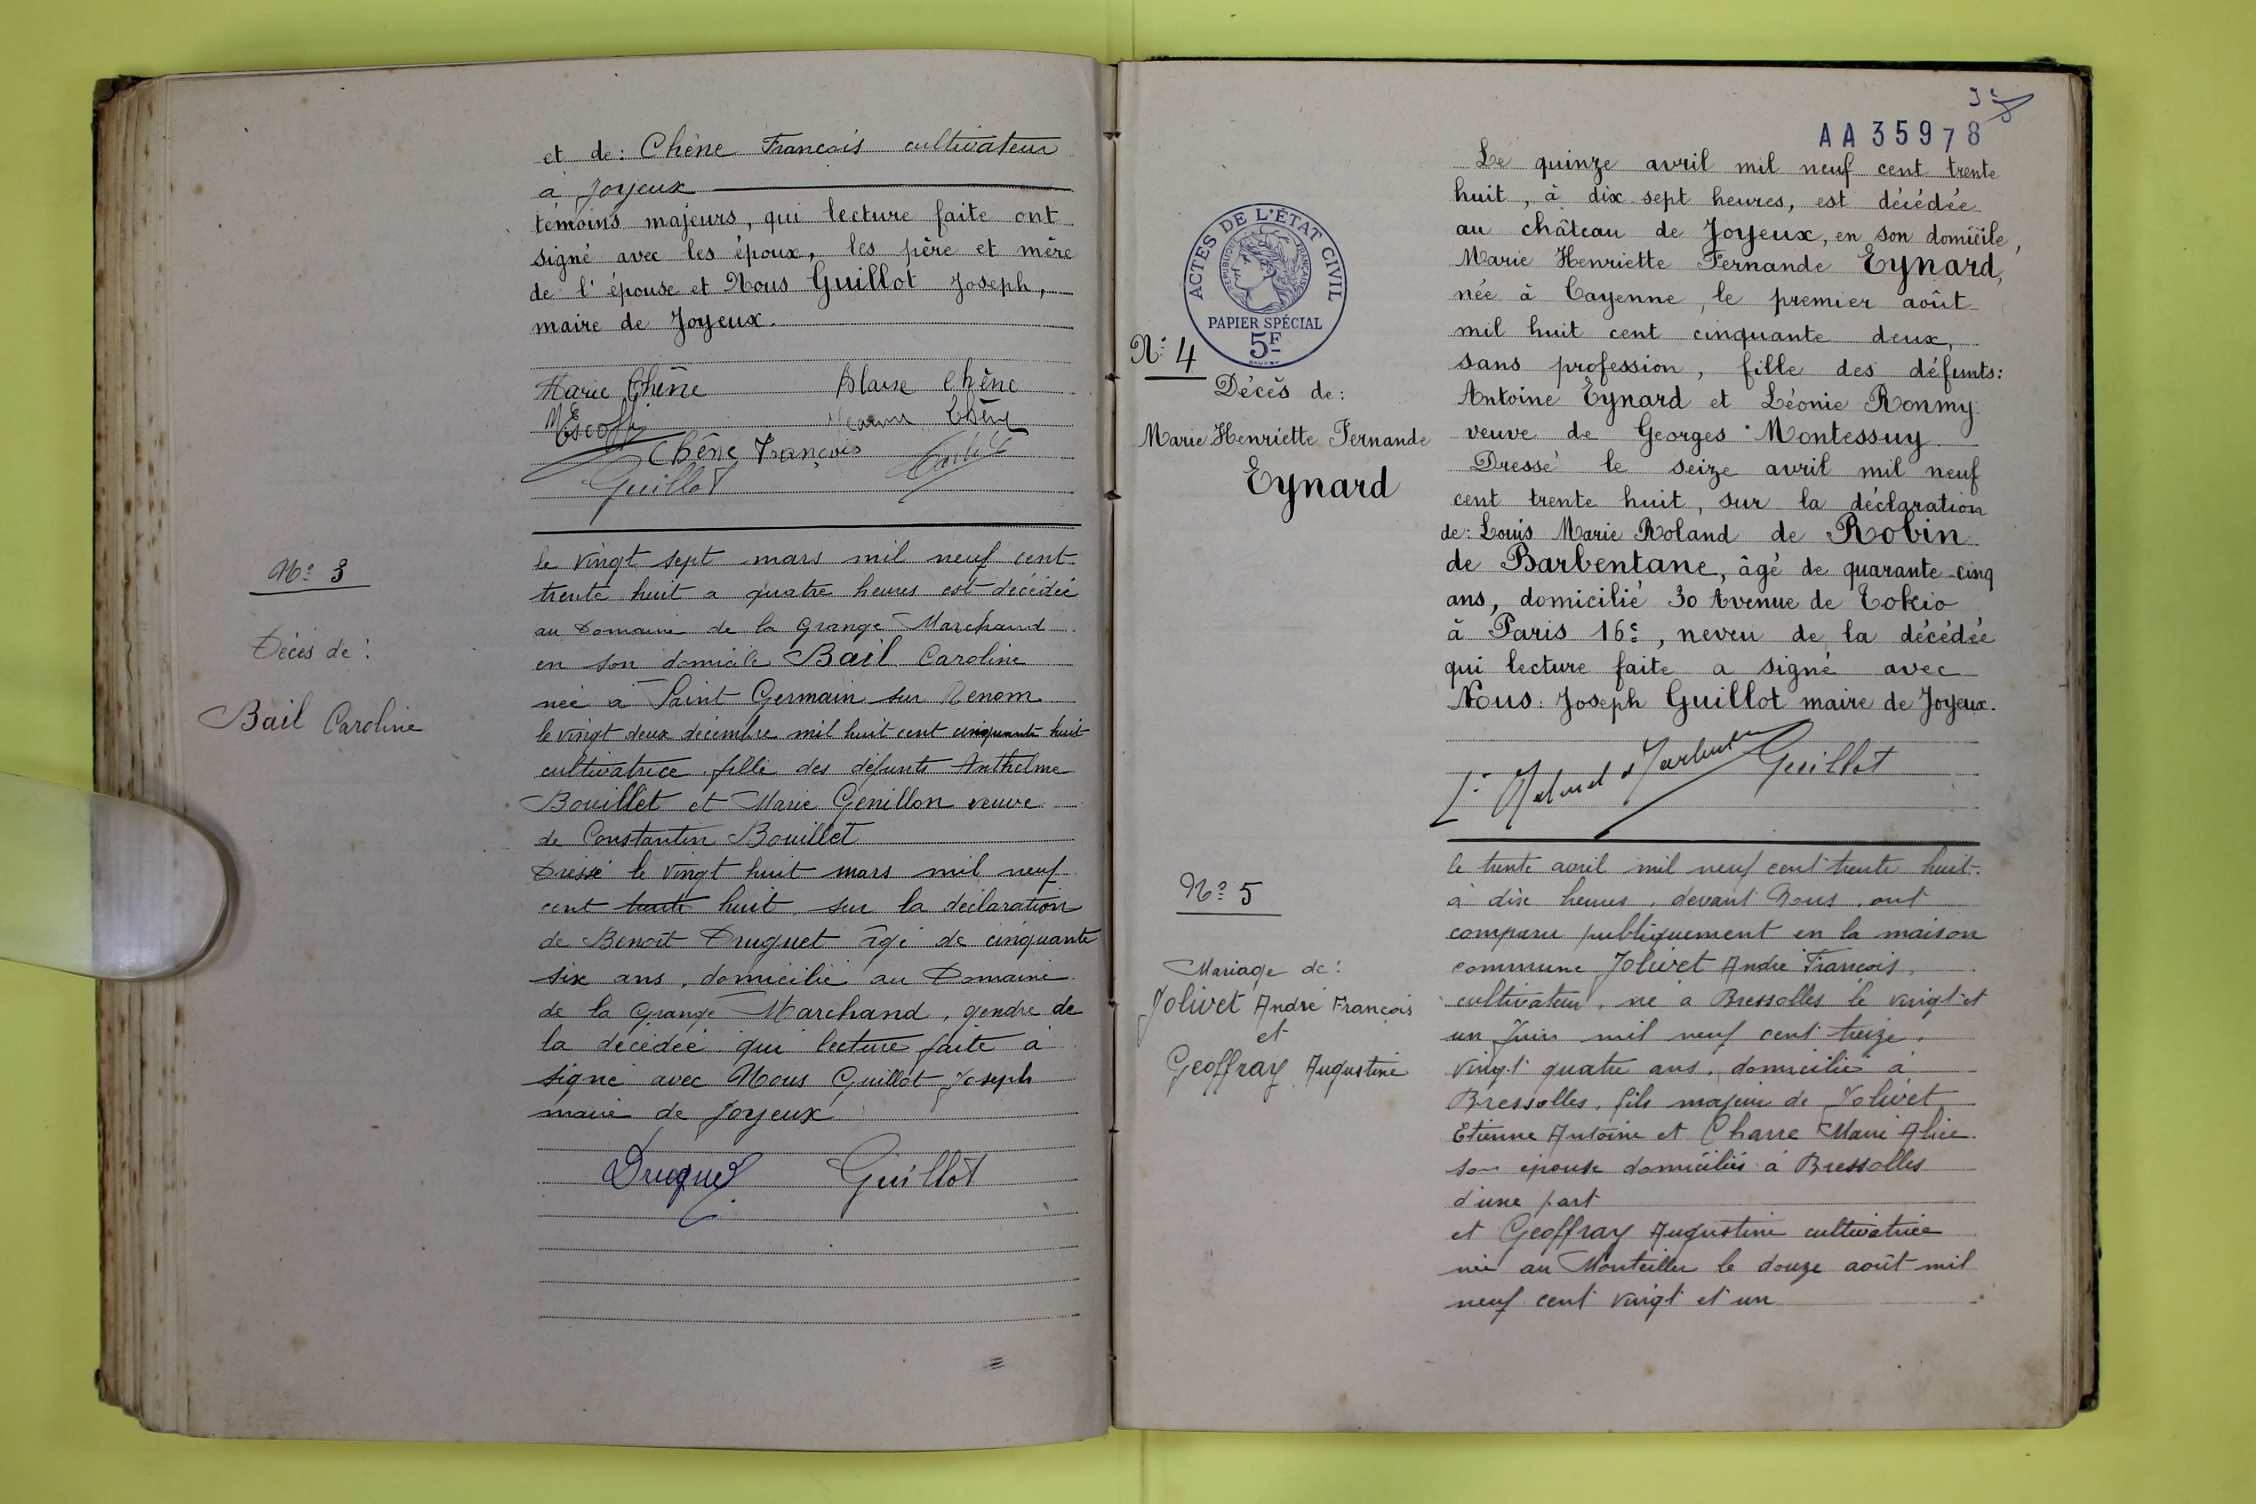 et de: Chêne François cultivateur
à Joyeux
témoins majeurs, qui lecture faite ont
signé avec les époux, les père et mère
de l'épouse et Nous Guillot Joseph,
maire de Joyeux.
Marie Chêne Blaise Chêne
Escoffi Chêne
Chêne François
Guillot
Nº 3
Décès de:
Bail Caroline
le vingt sept mars mil neuf cent
trente huit a quatre heures est décédée
au Domaine de la Grange Marchand
en son domicile Bail Caroline
née à Saint Germain sur Renom
le vingt deux décembre mil huit cent cinquante huit
cultivatrice, fille des défunts Anthelme
Bouillet et Marie Genillon veuve
de Constantin Bouillet
Dressé le vingt huit mars mil neuf
cent trente huit, sur la déclaration
de Benoît Druguet âgé de cinquante
six ans, domicilié au Domaine
de la Grange Marchand, gendre de
la décédée qui lecture faite a
signé avec Nous Guillot Joseph
maire de Joyeux
Druguet Guillot
AA35978
ACTES DE L'ÉTAT CIVIL
RÉPUBLIQUE FRANÇAISE
PAPIER SPÉCIAL
5F
Nº 4
Décès de:
Marie Henriette Fernande
Eynard
Le quinze avril mil neuf cent trente
huit, à dix sept heures, est décédée
au château de Joyeux, en son domicile,
Marie Henriette Fernande Eynard,
née à Cayenne, le premier août
mil huit cent cinquante deux,
sans profession, fille des défunts:
Antoine Eynard et Léonie Ronmy
veuve de Georges Montessuy
Dressé le seize avril mil neuf
cent trente huit, sur la déclaration
de: Louis Marie Roland de Robin
de Barbentane, âgé de quarante-cinq
ans, domicilié 30 Avenue de Tokio
à Paris 16e, neveu de la décédée
qui lecture faite a signé avec
Nous: Joseph Guillot maire de Joyeux.
Guillot
Nº 5
Mariage de:
Jolivet André François
et
Geoffray Augustine
le trente avril mil neuf cent trente huit
à dix heures, devant Nous, ont
comparu publiquement en la maison
commune Jolivet André François,
cultivateur, né à Bressolles le vingt et
un Juin mil neuf cent treize,
vingt quatre ans, domicilié à
Bressolles, fils majeur de Jolivet
Etienne Antoine et Charre Marie Alice
son épouse domiciliés à Bressolles
d'une part
et Geoffray Augustine cultivatrice
née au Montellier le douze août mil
neuf cent vingt et un